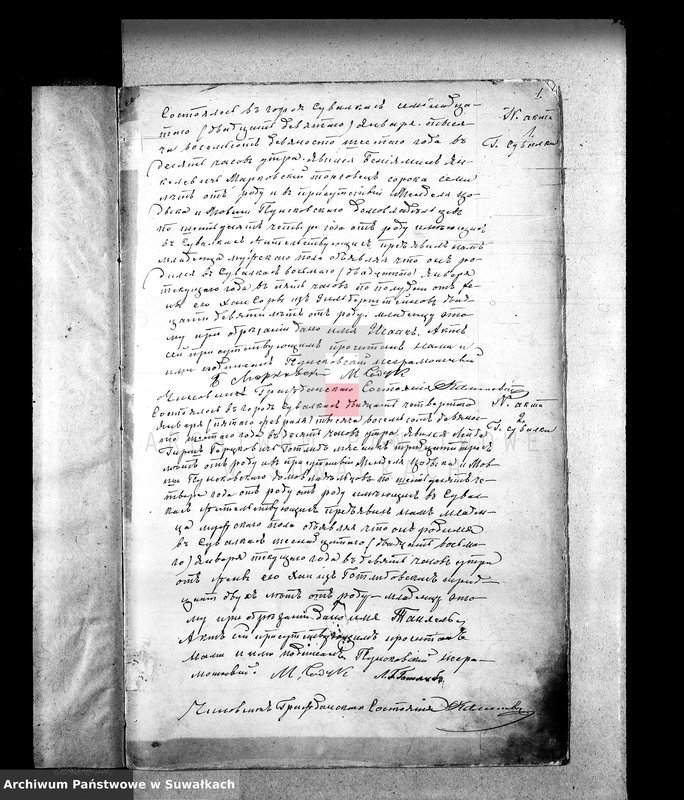 1.
N. акта
1.
Г. Сувалки
Состоялось въ городѣ Сувалкахъ
(двадцать девятаго) Января тыся-
ча восемьсотъ девяносто шестаго года въ
десять часовъ утра. Явился Беніяминъ Ян-
келевичъ Марковскій торговецъ сорока семи
лѣтъ отъ роду и въ присутствіи Менделя
и Мовши Пунсковскаго домовладѣльцевъ
по шестидесяти четыре года отъ роду имѣющихъ
въ Сувалкахъ жительствующихъ предъявилъ намъ
младенца мужскаго пола объявляя что онъ ро-
дился въ Сувалкахъ восьмаго (двадцатаго) Января
текущаго года въ пять часовъ по полудни отъ же-
ны его Хаи Соры изъ двад-
цати девяти лѣтъ отъ роду. Младенцу это-
му при обрѣзаніи дано имя Исаакъ. Актъ
сей присутствующимъ прочитанъ нами и
ими подписанъ Пунсковскій неграмотный
Б Марковскій М
Чиновникъ Гражданскаго Состоянія
N. акта
2.
Г. Сувалки
Состоялось въ городѣ Сувалкахъ двадцать четвертаго
Января (пятаго февраля) тысяча восемьсотъ девяно-
сто шестаго года въ десять часовъ утра. Явился Лейба
Готлибъ мясникъ тридцати трехъ
лѣтъ отъ роду и въ присутствіи Менделя и Мов-
ши Пунсковскаго домовладѣльцовъ по шестидесяти че-
тыре года отъ роду отъ роду имѣющихъ въ Сувал-
кахъ жительствующихъ предъявилъ намъ младен-
ца мужскаго пола объявляя что онъ родился
въ Сувалкахъ шестнадцатаго (двадцать восьма-
го) Января текущаго года въ девять часовъ утра
отъ жены его Хаи изъ трид-
цати двухъ лѣтъ отъ роду. Младенцу это-
му при обрѣзаніи дано имя
Актъ сей присутствующимъ прочитанъ
нами и ими подписанъ Пунсковскій негра-
мотный. М
Чиновникъ Гражданскаго Состоянія
Archiwum Państwowe w Suwałkach